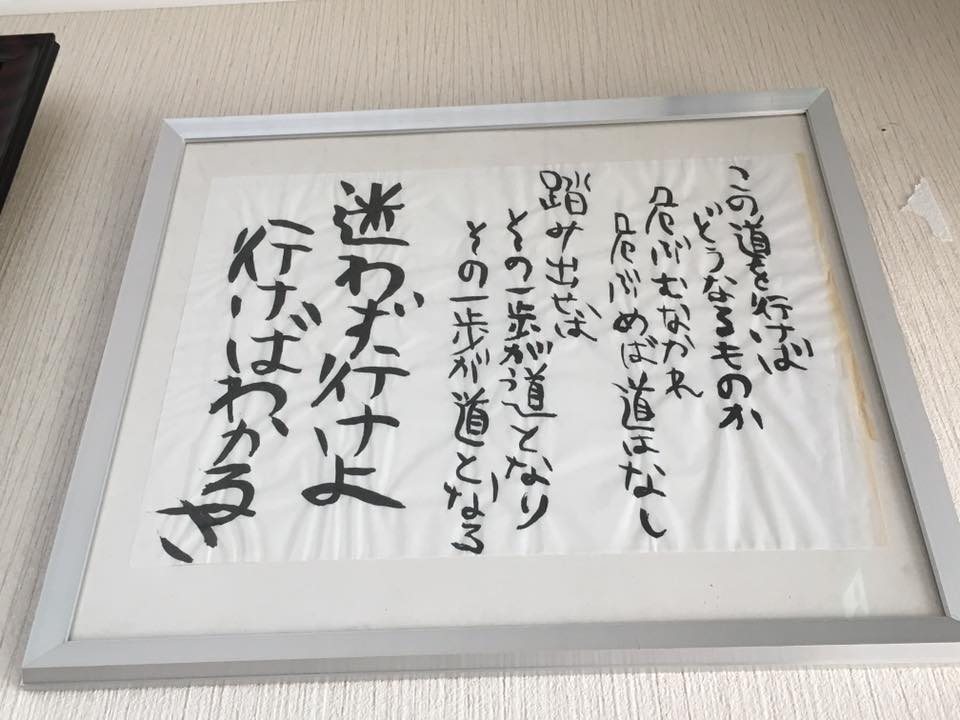 この道を行けば
どうなるものか
危ぶむなかれ
危ぶめば道はなし
踏み出せば
その一歩が道となり
その一歩が道となる
迷わず行けよ
行けばわかるさ